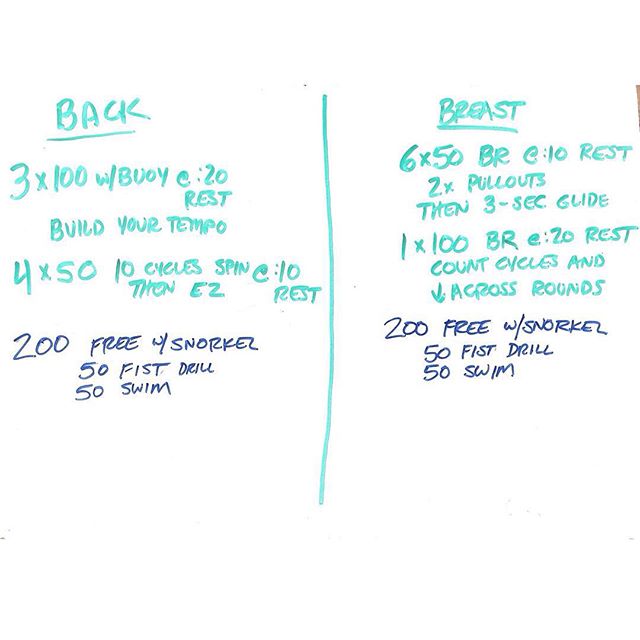 BACK
3x100 w/BUOY @:20
REST
BUILD YOUR TEMPO
4x50 10 CYCLES SPIN @:10
THEN EZ REST
200 FREE w/SNORKEL
50 FIST DRILL
50 SWIM
BREAST
6x50 BR @:10 REST
2x PULLOUTS
THEN 3-SEC GLIDE
1x100 BR @:20 REST
COUNT CYCLES AND
↓ ACROSS ROUNDS
200 FREE w/SNORKEL
50 FIST DRILL
50 SWIM